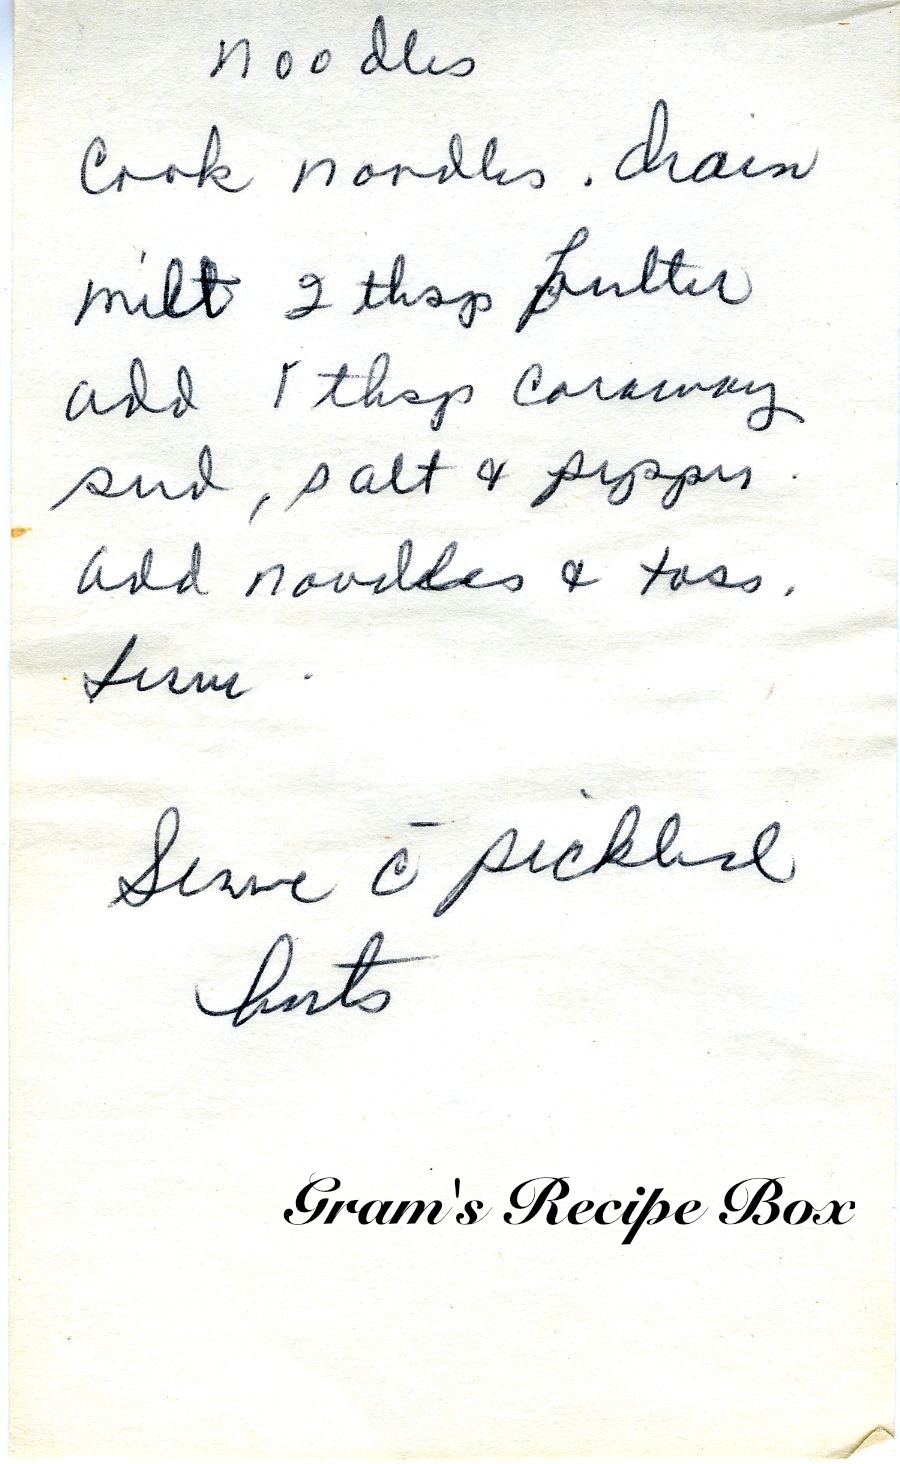 Noodles
Cook noodles. drain
melt 2 tbsp butter
add 1 tbsp caraway
seed, salt & pepper.
add noodles & toss.
serve.
Serve c̄ pickled
beets
Gram's Recipe Box